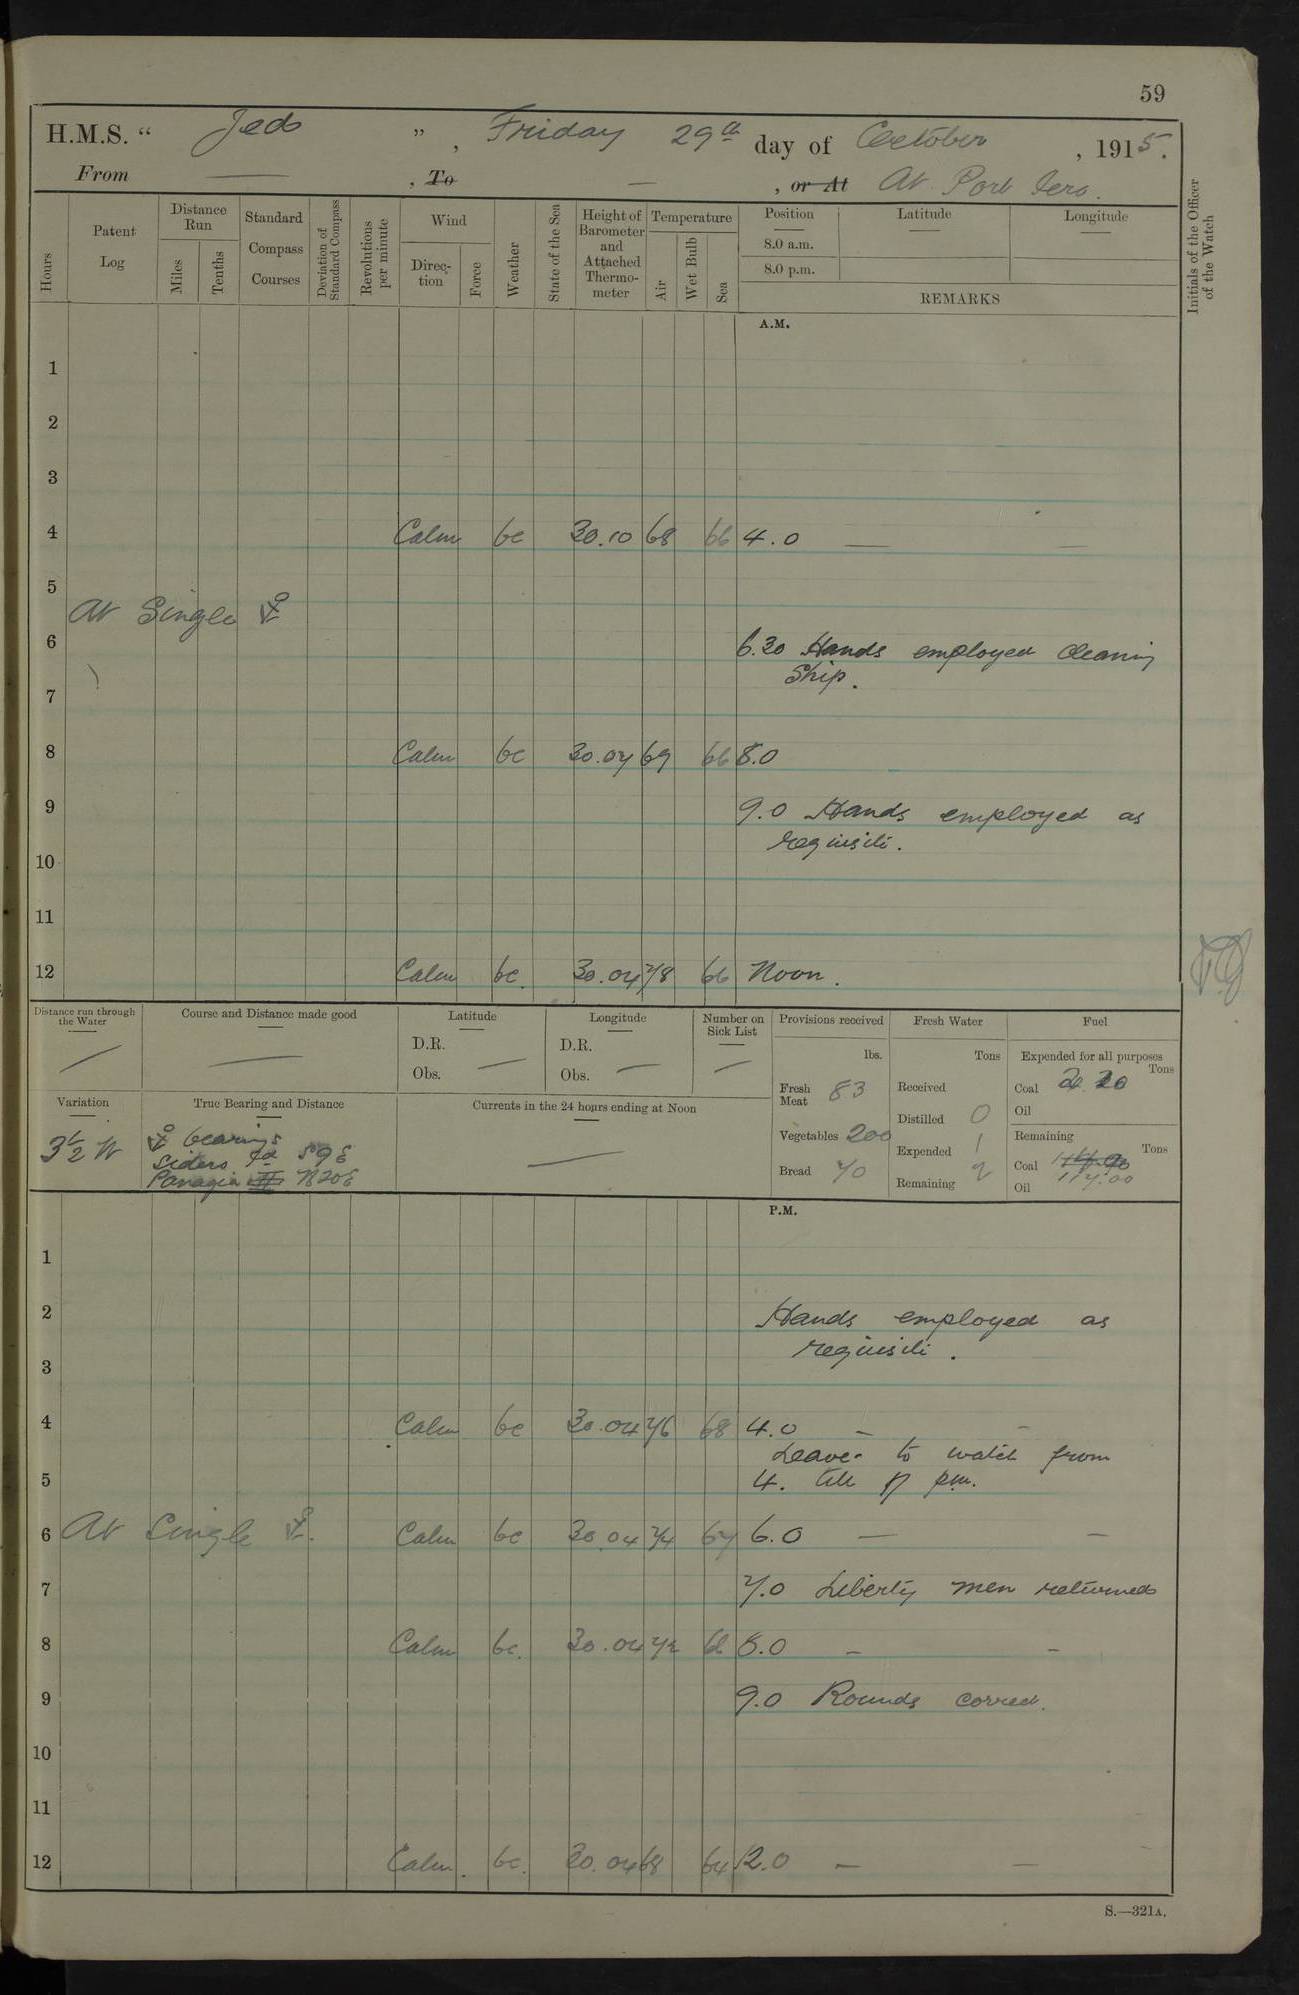 59
H.M.S. " Jed ", Friday 29th day of October, 1915.
From — , To — , or At At Port Iero.
Hours
Patent Log
Distance Run
Miles
Tenths
Standard Compass Courses
Deviation of Standard Compass
Revolutions per minute
Wind
Direction
Force
Weather
State of the Sea
Height of Barometer and Attached Thermometer
Temperature
Air
Wet Bulb
Sea
Position
8.0 a.m.
8.0 p.m.
Latitude
Longitude
REMARKS
Initials of the Officer of the Watch
A.M.
1
2
3
4 Calm bc 30.10 68 66 4.0 — —
5
At Single ⚓
6
6.30 Hands employed cleaning
Ship.
7
8 Calm bc 30.04 69 66 8.0
9 9.0 Hands employed as
requisite.
10
11
12 Calm bc. 30.04 78 66 Noon.
Distance run through the Water
—
Course and Distance made good
—
Latitude
D.R.
Obs. —
Longitude
D.R.
Obs. —
Number on Sick List
—
Provisions received
lbs.
Fresh Meat 83
Vegetables 200
Bread 70
Fresh Water
Tons
Received
Distilled 0
Expended 1
Remaining 2
Fuel
Expended for all purposes
Tons
Coal
Oil
Remaining
Tons
Coal
Oil
Variation
3½ W
True Bearing and Distance
⚓ bearings
S 9 E
Panagia N 20 E
Currents in the 24 hours ending at Noon
—
P.M.
1
2 Hands employed as
requisite.
3
4 Calm bc 30.04 76 68 4.0 — —
Leave to watch from
5 4. till 7 pm.
6 At Single ⚓. Calm bc 30.04 74 67 6.0 — —
7 7.0 Liberty men returned
8 Calm bc. 30.04 72 66 8.0 — —
9 9.0 Rounds correct.
10
11
12 Calm. bc. 30.04 68 64 12.0 — —
S.—321A.